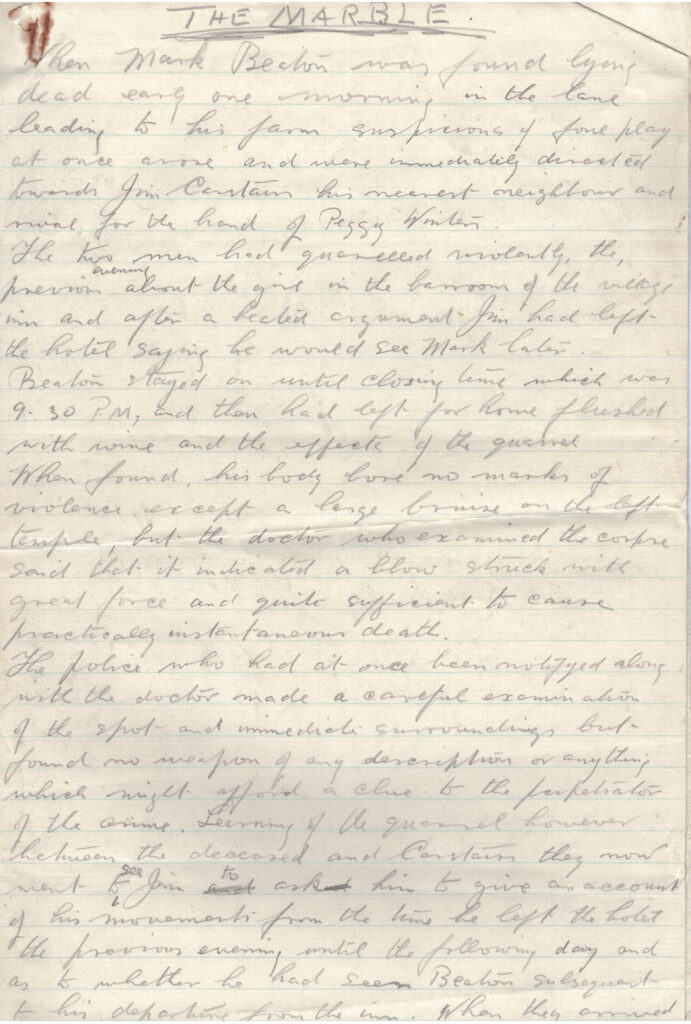 THE MARBLE.
When Mark Beaton was found lying
dead early one morning in the lane
leading to his farm suspicions of foul play
at once arose and were immediately directed
towards Jim Carstairs his nearest neighbour and
rival for the hand of Peggy Winters.
The two men had quarrelled violently, the,
previous evening about the girl in the barroom of the village
inn and after a heated argument Jim had left
the hotel saying he would see Mark later.
Beaton stayed on until closing time which was
9.30 PM, and then had left for home flushed
with wine and the effects of the quarrel
When found, his body bore no marks of
violence except a large bruise on the left
temple, but the doctor who examined the corpse
said that it indicated a blow struck with
great force and quite sufficient to cause
practically instantaneous death.
The police who had at once been notifyed along
with the doctor made a careful examination
of the spot and immediate surroundings but
found no weapon of any description or anything
which might afford a clue to the perpetrator
of the crime. Learning of the quarrel however
between the deceased and Carstairs they now
went to see Jim to ask him to give an account
of his movements from the time he left the hotel
the previous evening until the following day and
as to whether he had seen Beaton subsequent
to his departure from the inn. When they arrived